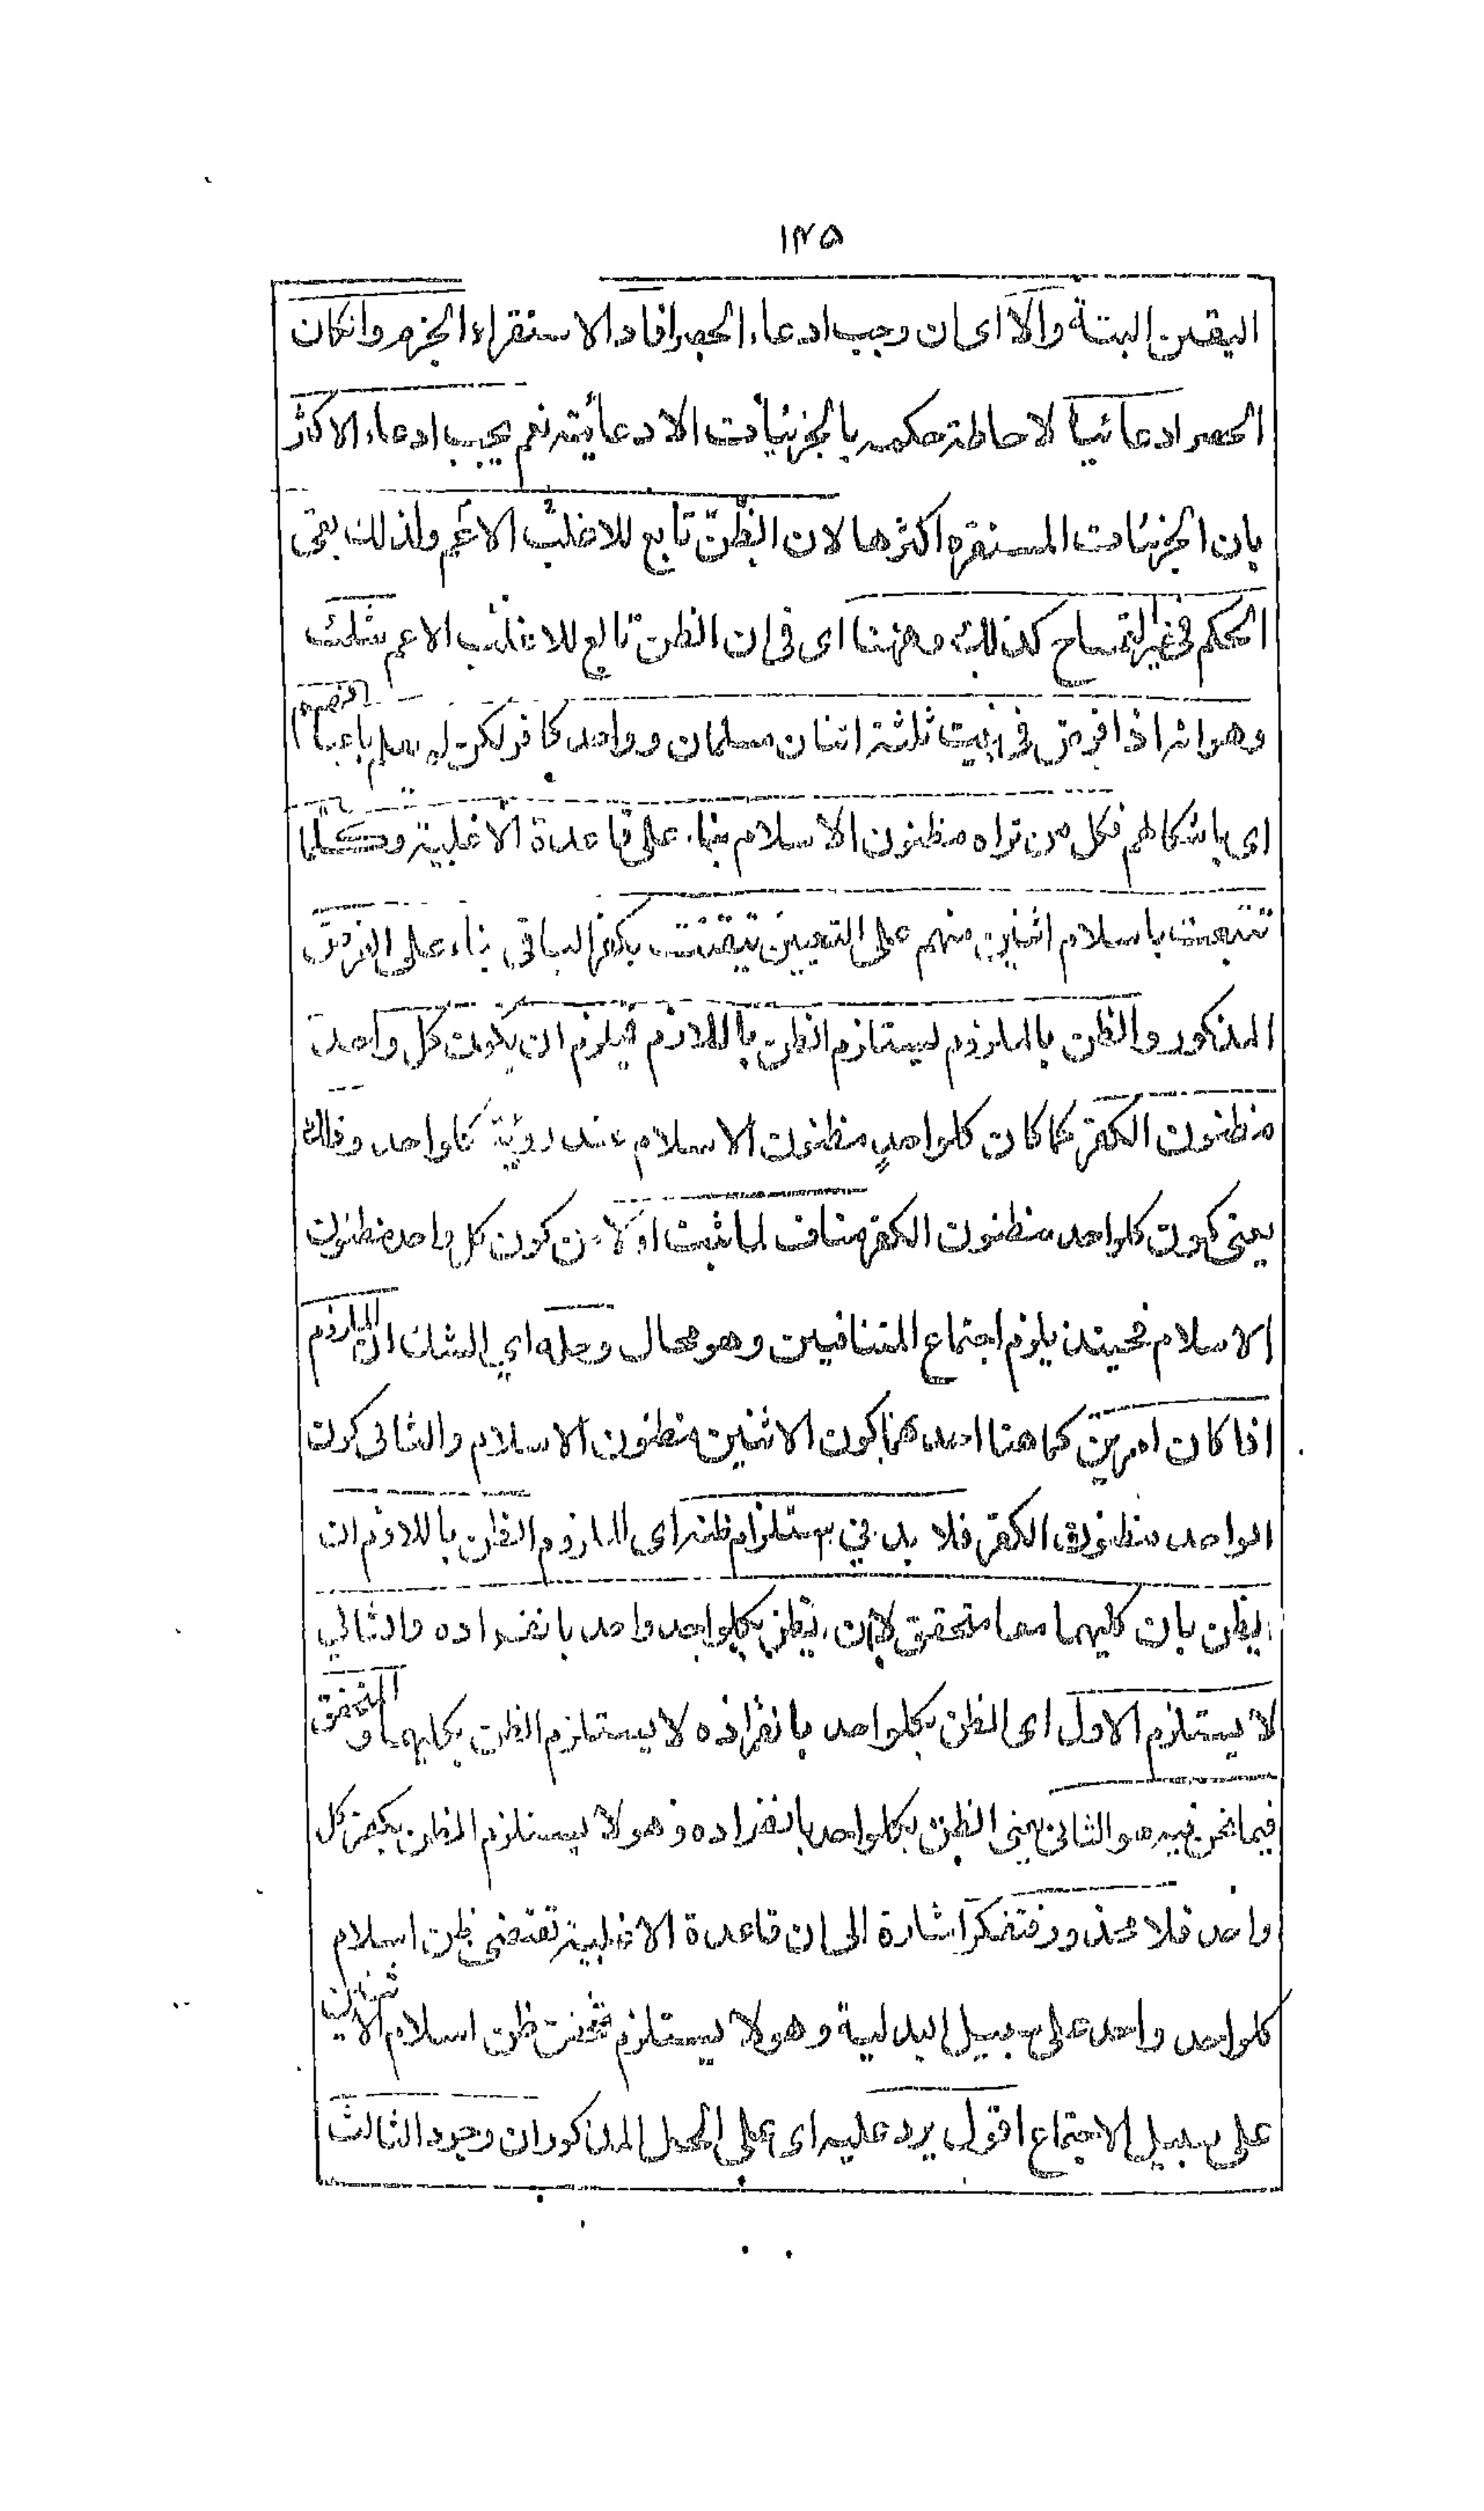 ١٢٥
اليقين البتة والا اى ان وجب ادعاء الحصر افاد الاستقراء الجزم وانكان
الحصر ادعائيا لاحاطة حكمه بالجزئيات الادعائية نعم يجب ادعاء الاكثر
بان الجزئيات المستقره اكثرها لان الظن تابع للاغلب الاعم ولذلك بقى
الحكم فى غير التمساح كذلك وههنا اى فى ان الظن تابع للاغلب الاعم شك
وهو انه اذا فرض فى بيت ثلثة اثنان مسلمان وواحد كافر لكن لم يعلم باعيانهم
اى باشكالهم فكل من تراه مظنون الاسلام بناء على قاعدة الاغلبية وكلما
تتبعت باسلام اثنين منهم على التعيين تيقنت بكفر الباقى بناء على الفرض
المذكور والظن بالملزوم ليستلزم الظن باللازم فيلزم ان يكون كل واحد
مظنون الكفر كما كان كلواحد مظنون الاسلام عند روية كلواحد وذلك
يعنى كون كلواحد مظنون الكفر مناف لما ثبت اولا من كون كل واحد مظنون
الاسلام فحينئذ يلزم اجتماع المتنافيين وهو محال وحله اي الشك ان الملزوم
اذا كان امرين كما هنا احدهما كون الاثنين مظنون الاسلام والثانى كون
الواحد مظنون الكفر فلا بد فى استلزام ظنه اى الملزوم الظن باللازم ان
يظن بان كليهما معا متحقق لا بان يظن بكلواحد واحد بانفراده والثاني
لا يستلزم الاول اى الظن بكلواحد بانفراده لا يستلزم الظن بكليهما والمتحقق
فيما نحن فيه هو الثانى يعنى الظن بكلواحد بانفراده وهو لا يستلزم الظن بكفر كل
واحد فلا محذور فتفكر اشارة الى ان قاعدة الاغلبية تقتضى ظن اسلام
كلواحد واحد على سبيل البدلية وهو لا يستلزم تحقق ظن اسلام الاثنين
على سبيل الاجتماع اقول يرد عليه اى على الحل المذكور ان وجود الثالث